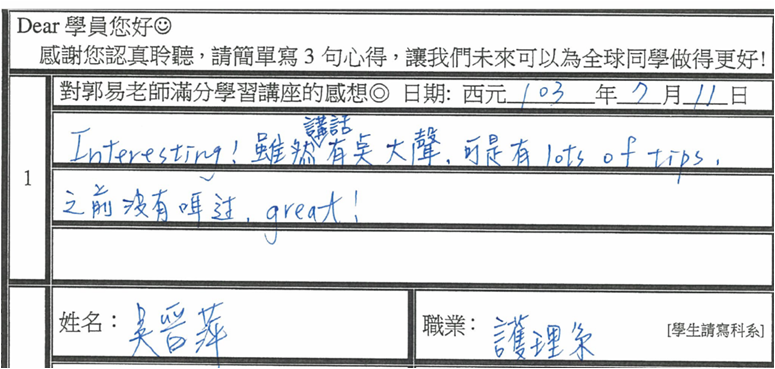 Dear 學員您好☺
感謝您認真聆聽，請簡單寫 3 句心得，讓我們未來可以為全球同學做得更好!
對郭易老師滿分學習講座的感想◎ 日期: 西元 103 年 7 月 11 日
1
Interesting! 雖然講話有点大聲, 可是有 lots of tips,
之前沒有听过, great!
姓名：吳晉萍
職業：護理系 [學生請寫科系]